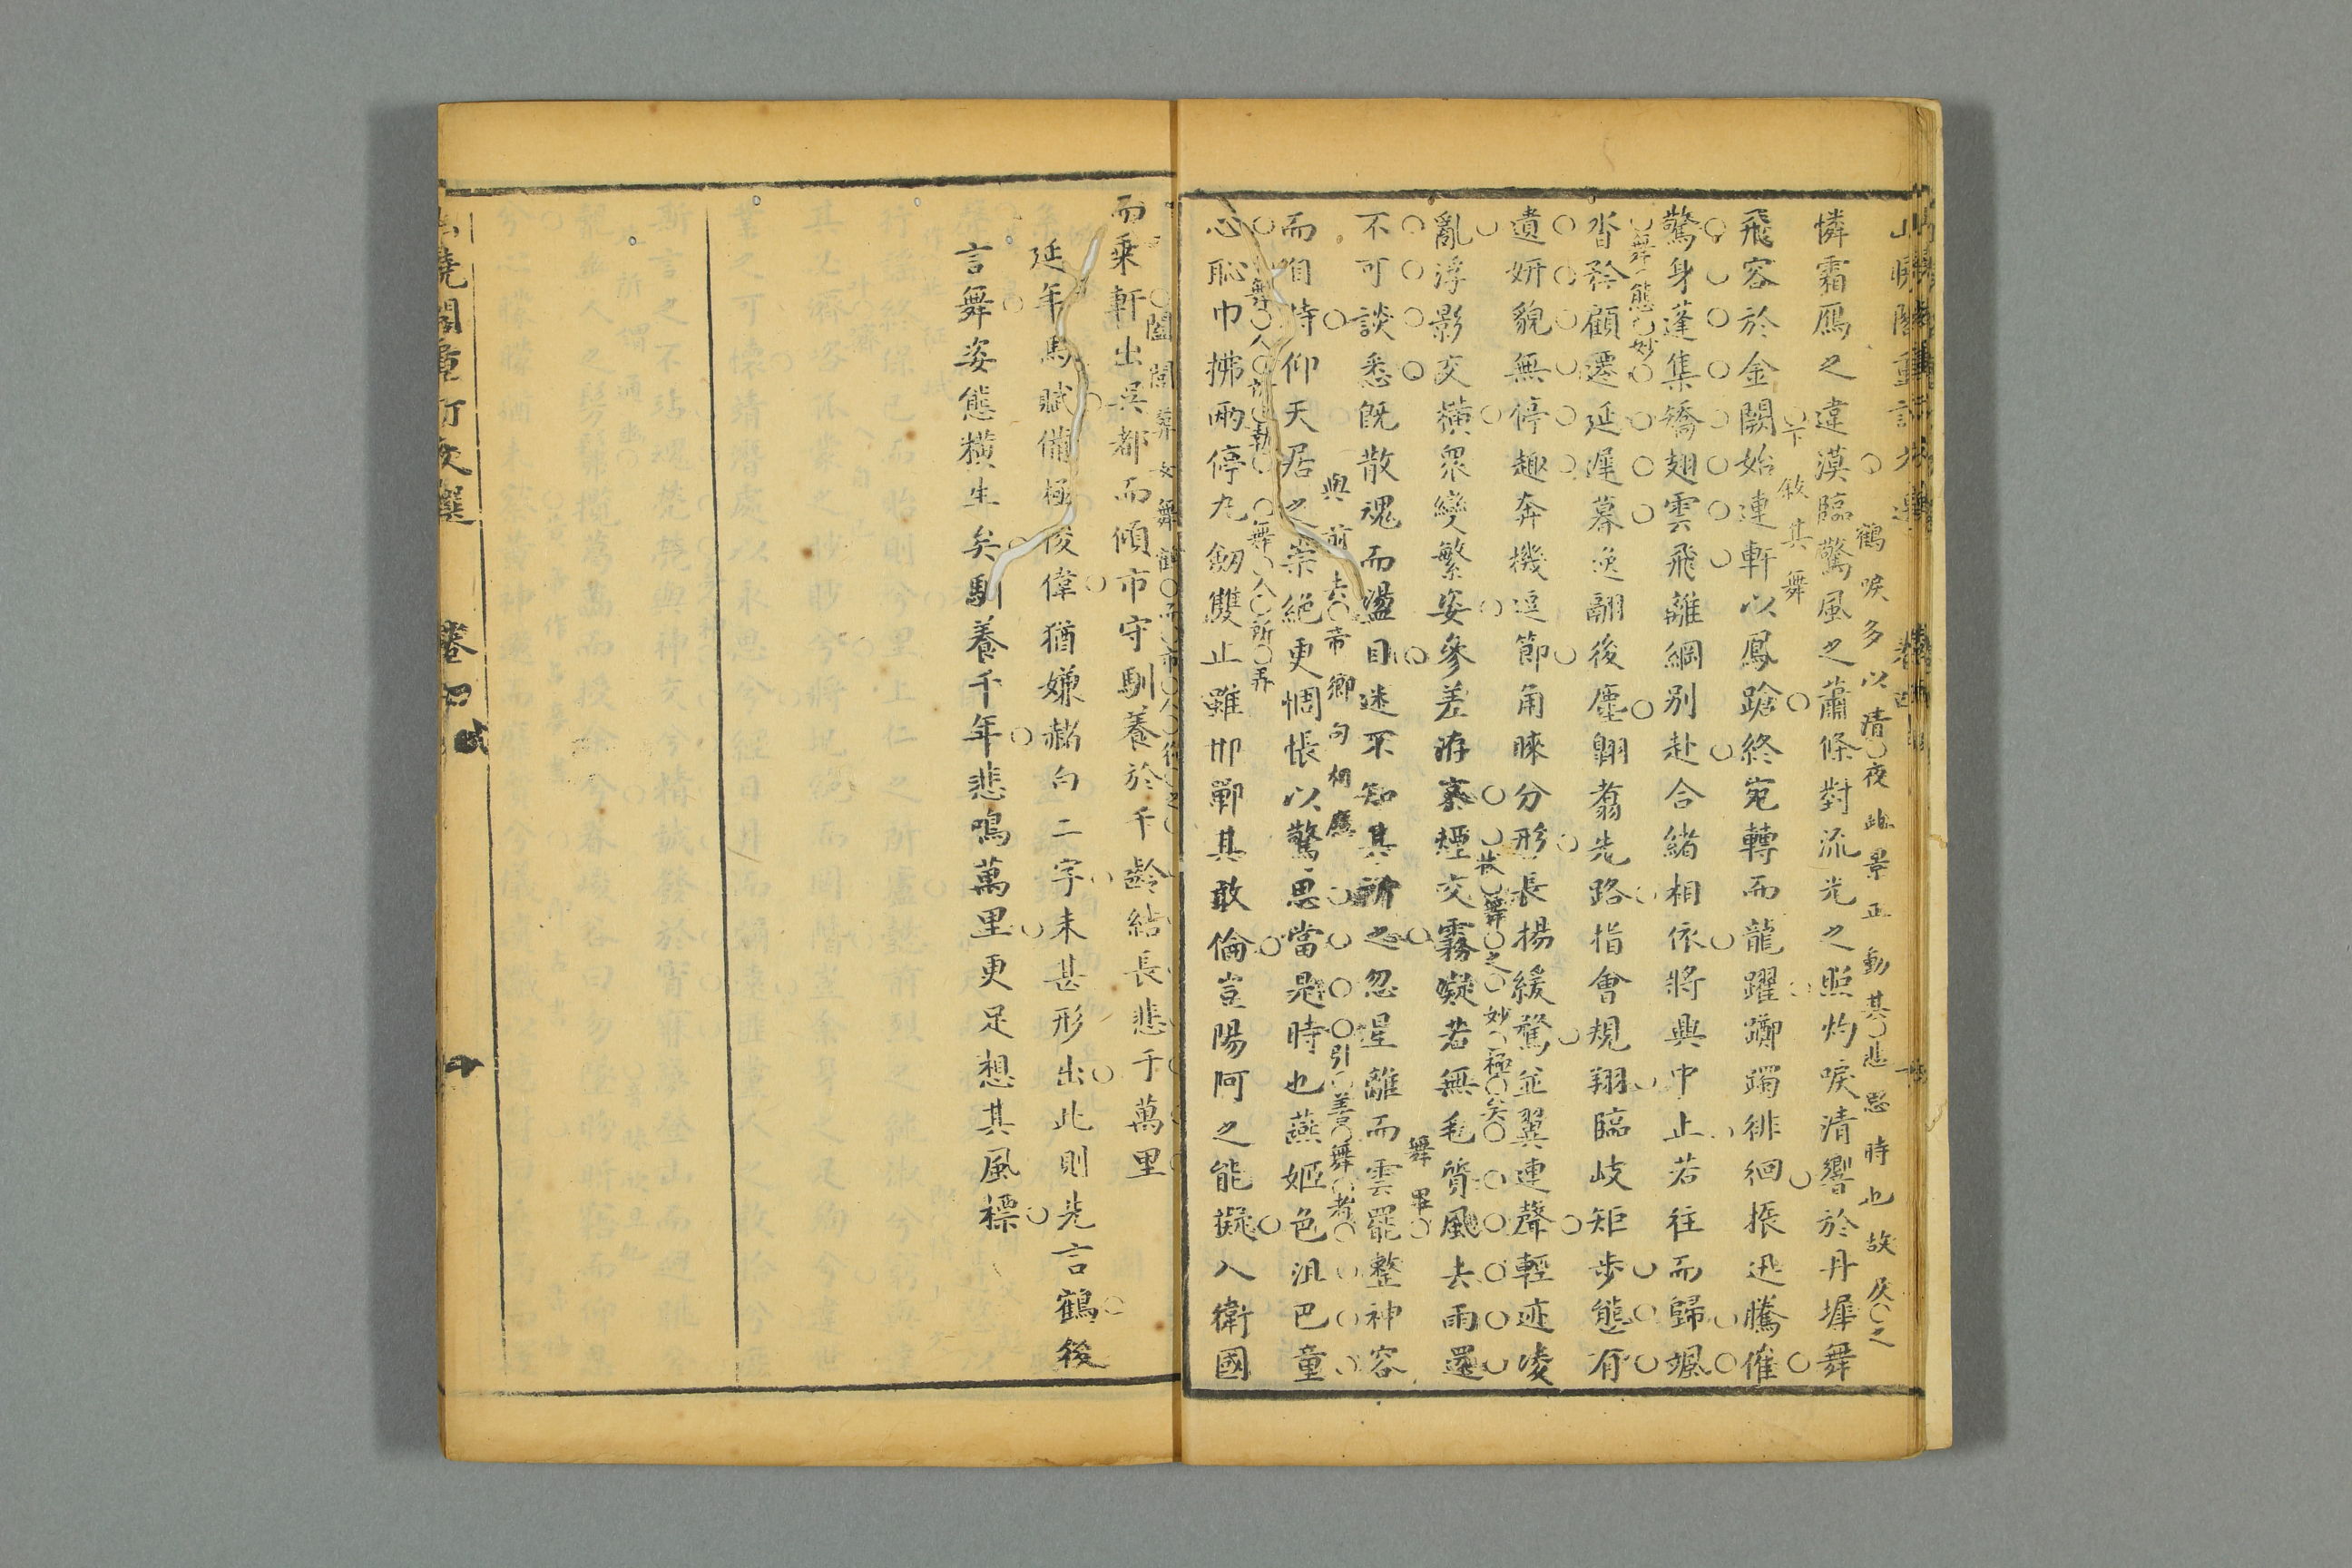 憐霜鴈之違漠臨驚風之蕭條對流光之照灼唳清響於丹墀舞
鶴唳多以清夜此景正動其悲思時也故及之
飛容於金闕始連軒以鳳蹌終宛轉而龍躍躑躅徘徊振迅騰摧
下敘其舞
驚身蓬集矯翅雪飛離綱別赴合緒相依將興中止若往而歸颯
沓矜顧遷延遲暮逸翮後塵翱翥先路指會規翔臨岐矩步態有
舞態妙
遺妍貌無停趣奔機逗節角睞分形長揚緩騖並翼連聲輕迹凌
亂浮影交橫眾變繁姿參差洊密煙交霧凝若無毛質風去雨還
狀舞之妙極矣
不可談悉既散魂而盪目迷不知其所之忽星離而雲罷整神容
舞畢
而自持仰天居之崇絕更惆悵以驚思當是時也燕姬色沮巴童
與前去帝鄉句相應
引善舞者
心恥巾拂兩停丸劒雙止雖邯鄲其敢倫豈陽阿之能擬入衛國
舞人所執
舞人所弄
而乘軒出吳都而傾市守馴養於千齡結長悲于萬里
闔閭葬女舞鶴而市人從之
延年馬賦備極俊偉猶嫌赭白二字未甚形出此則先言鶴後
言舞姿態橫生矣馴養千年悲鳴萬里更足想其風標
山曉閣重訂文選 卷四 賦